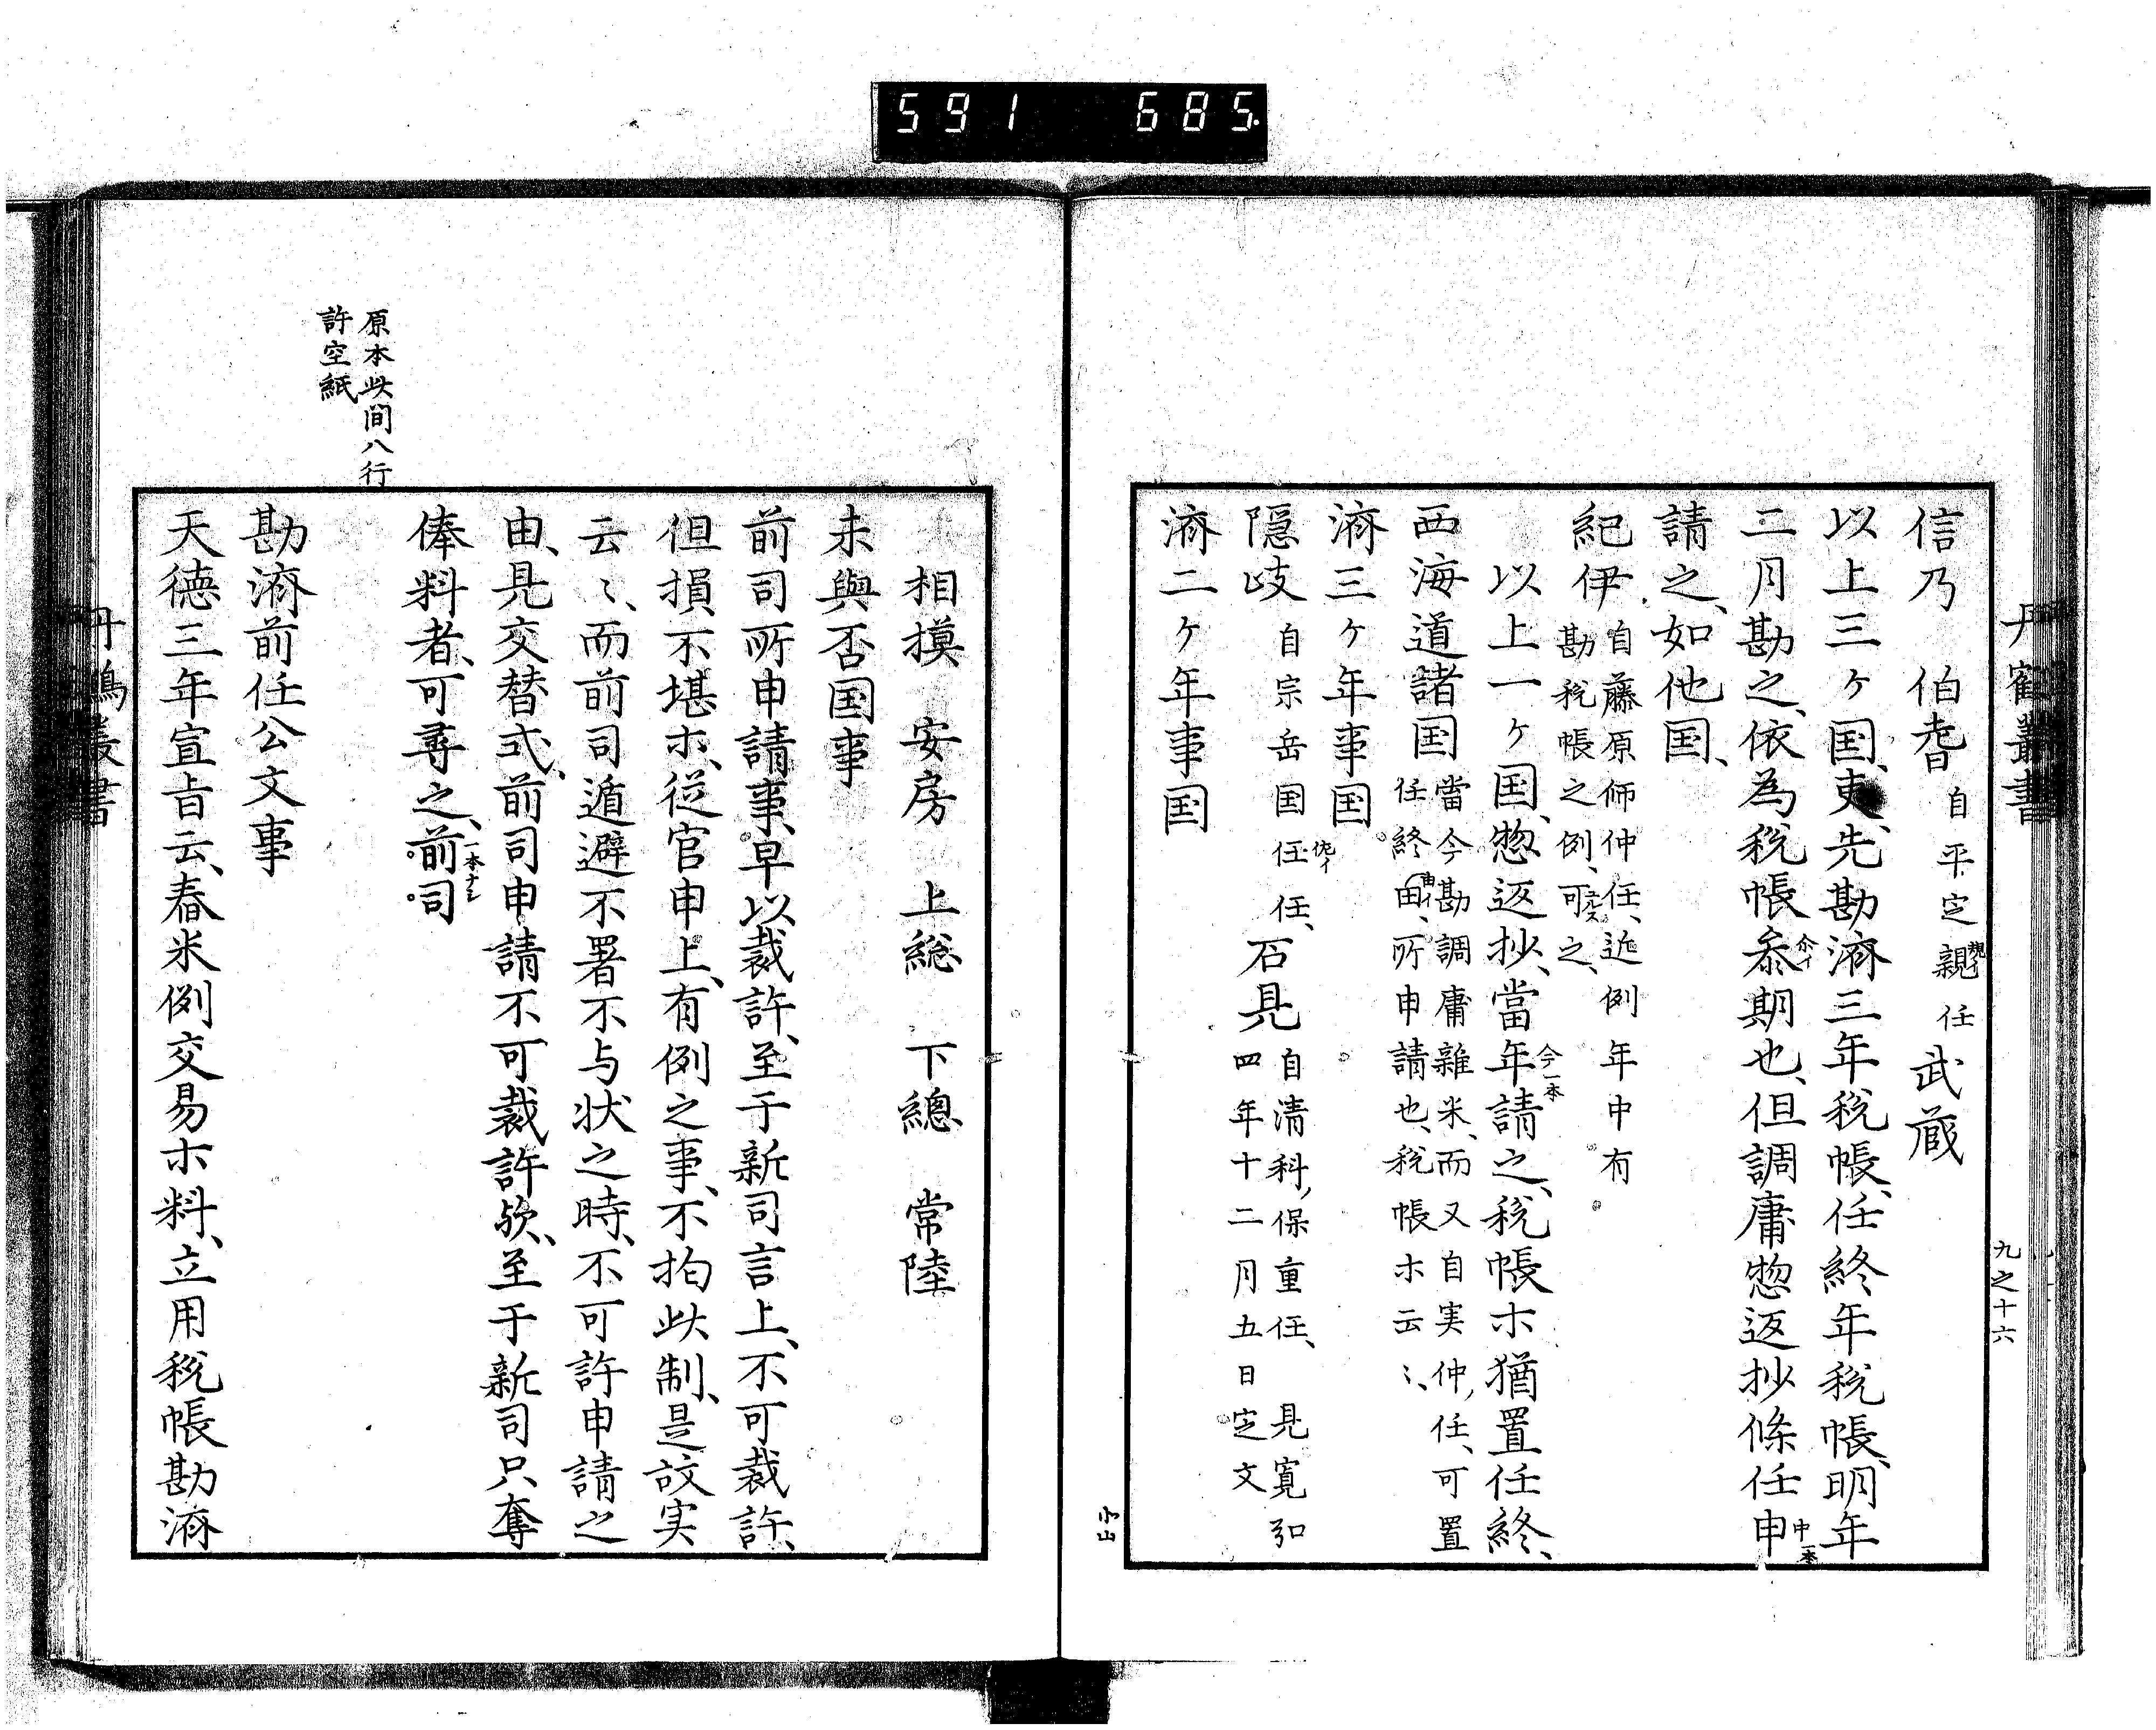 591 685
丹鶴叢書
九之十六
信乃 伯耆 自平定親任 武蔵
以上三ヶ国、吏、先勘済三年税帳、任終年税帳、明年
二月勘之、依為税帳参期也、但調庸惣返抄條任申
請之、如他国、
紀伊 自藤原師仲任、近例年中有
勘税帳之例、可立之、
以上一ヶ国、惣返抄、當年請之、税帳ホ猶置任終、
西海道諸国 當今勘調庸雑米、而又自実仲任、可置
任終由、所申請也、税帳ホ云〻、
済三ヶ年事国
隠岐 自宗岳国任任、 石見 自清科保重任、見寛弘
四年十二月五日定文
済二ヶ年事国
相摸 安房 上総 下總 常陸
未與否国事
前司所申請事、早以裁許、至于新司言上、不可裁許、
但損不堪ホ、従官申上、有例之事、不拘此制、是故実
云〻、而前司遁避不署不与状之時、不可許申請之
由、見交替式、前司申請不可裁許歟、至于新司只奪
俸料者、可尋之、前司
一本ナシ
原本此間八行
許空紙
勘済前任公文事
天徳三年宣旨云、舂米例交易ホ料、立用税帳勘済
丹鶴叢書